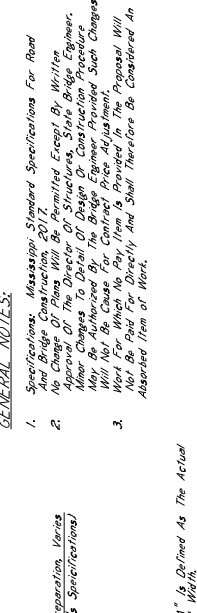 GENERAL NOTES:
1. Specifications: Mississippi Standard Specifications For Road
And Bridge Construction, 2017.
2. No Change Of Plans Will Be Permitted Except By Written
Approval Of The Director Of Structures, State Bridge Engineer.
Minor Changes To Detail Of Design Or Construction Procedure
May Be Authorized By The Bridge Engineer Provided Such Changes
Will Not Be Cause For Contract Price Adjustment.
3. Work For Which No Pay Item Is Provided In The Proposal Will
Not Be Paid For Directly And Shall Therefore Be Considered An
Absorbed Item of Work.
eparation, Varies
s Speicifications)
" Is Defined As The Actual
Width.